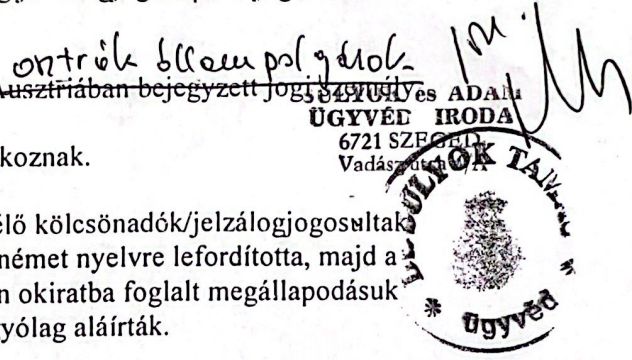 osztrák állampolgárok
Ausztriában bejegyzett jogi személy
SULYOK és ADAM
ÜGYVÉD IRODA
6721 SZEGED,
Vadász utca
koznak.
DR SULYOK TAMÁS
ügyvéd
élő kölcsönadók/jelzálogjogosultak
német nyelvre lefordította, majd a
n okiratba foglalt megállapodásuk
yólag aláírták.